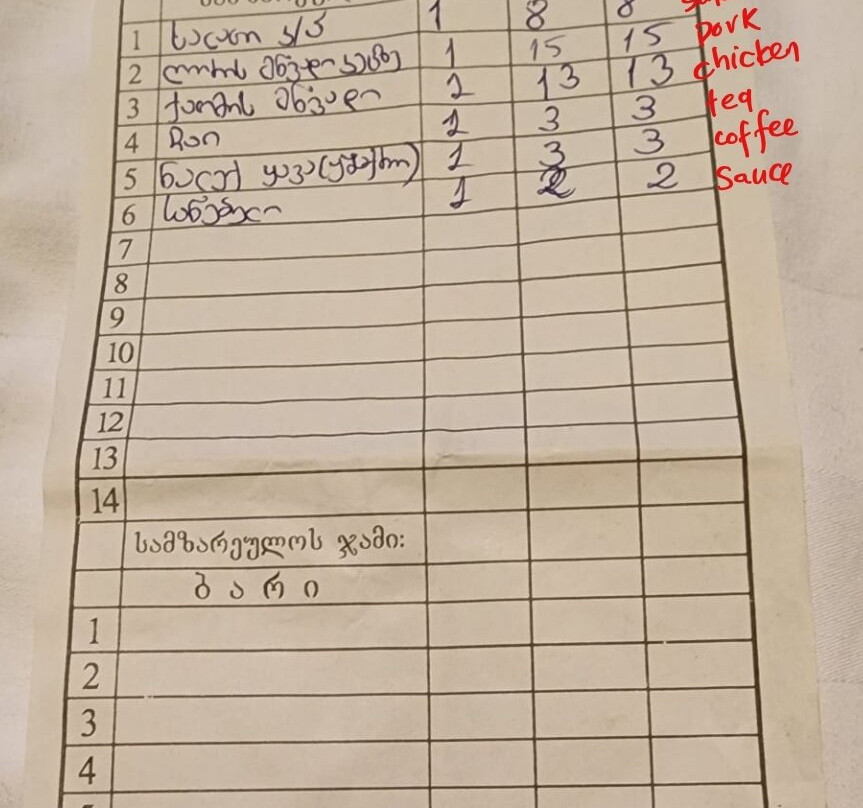 1 სალათი კ/პ 1 8 8
2 ღორის მწვადი კეცზე 1 15 15 pork
3 ქათმის მწვადი 1 13 13 chicken
4 ჩაი 1 3 3 tea
5 ნალექ ყავა(უშაქრო) 1 3 3 coffee
6 საწებელი 1 2 2 Sauce
7
8
9
10
11
12
13
14
სამზარეულოს ჯამი:
ბარი
1
2
3
4